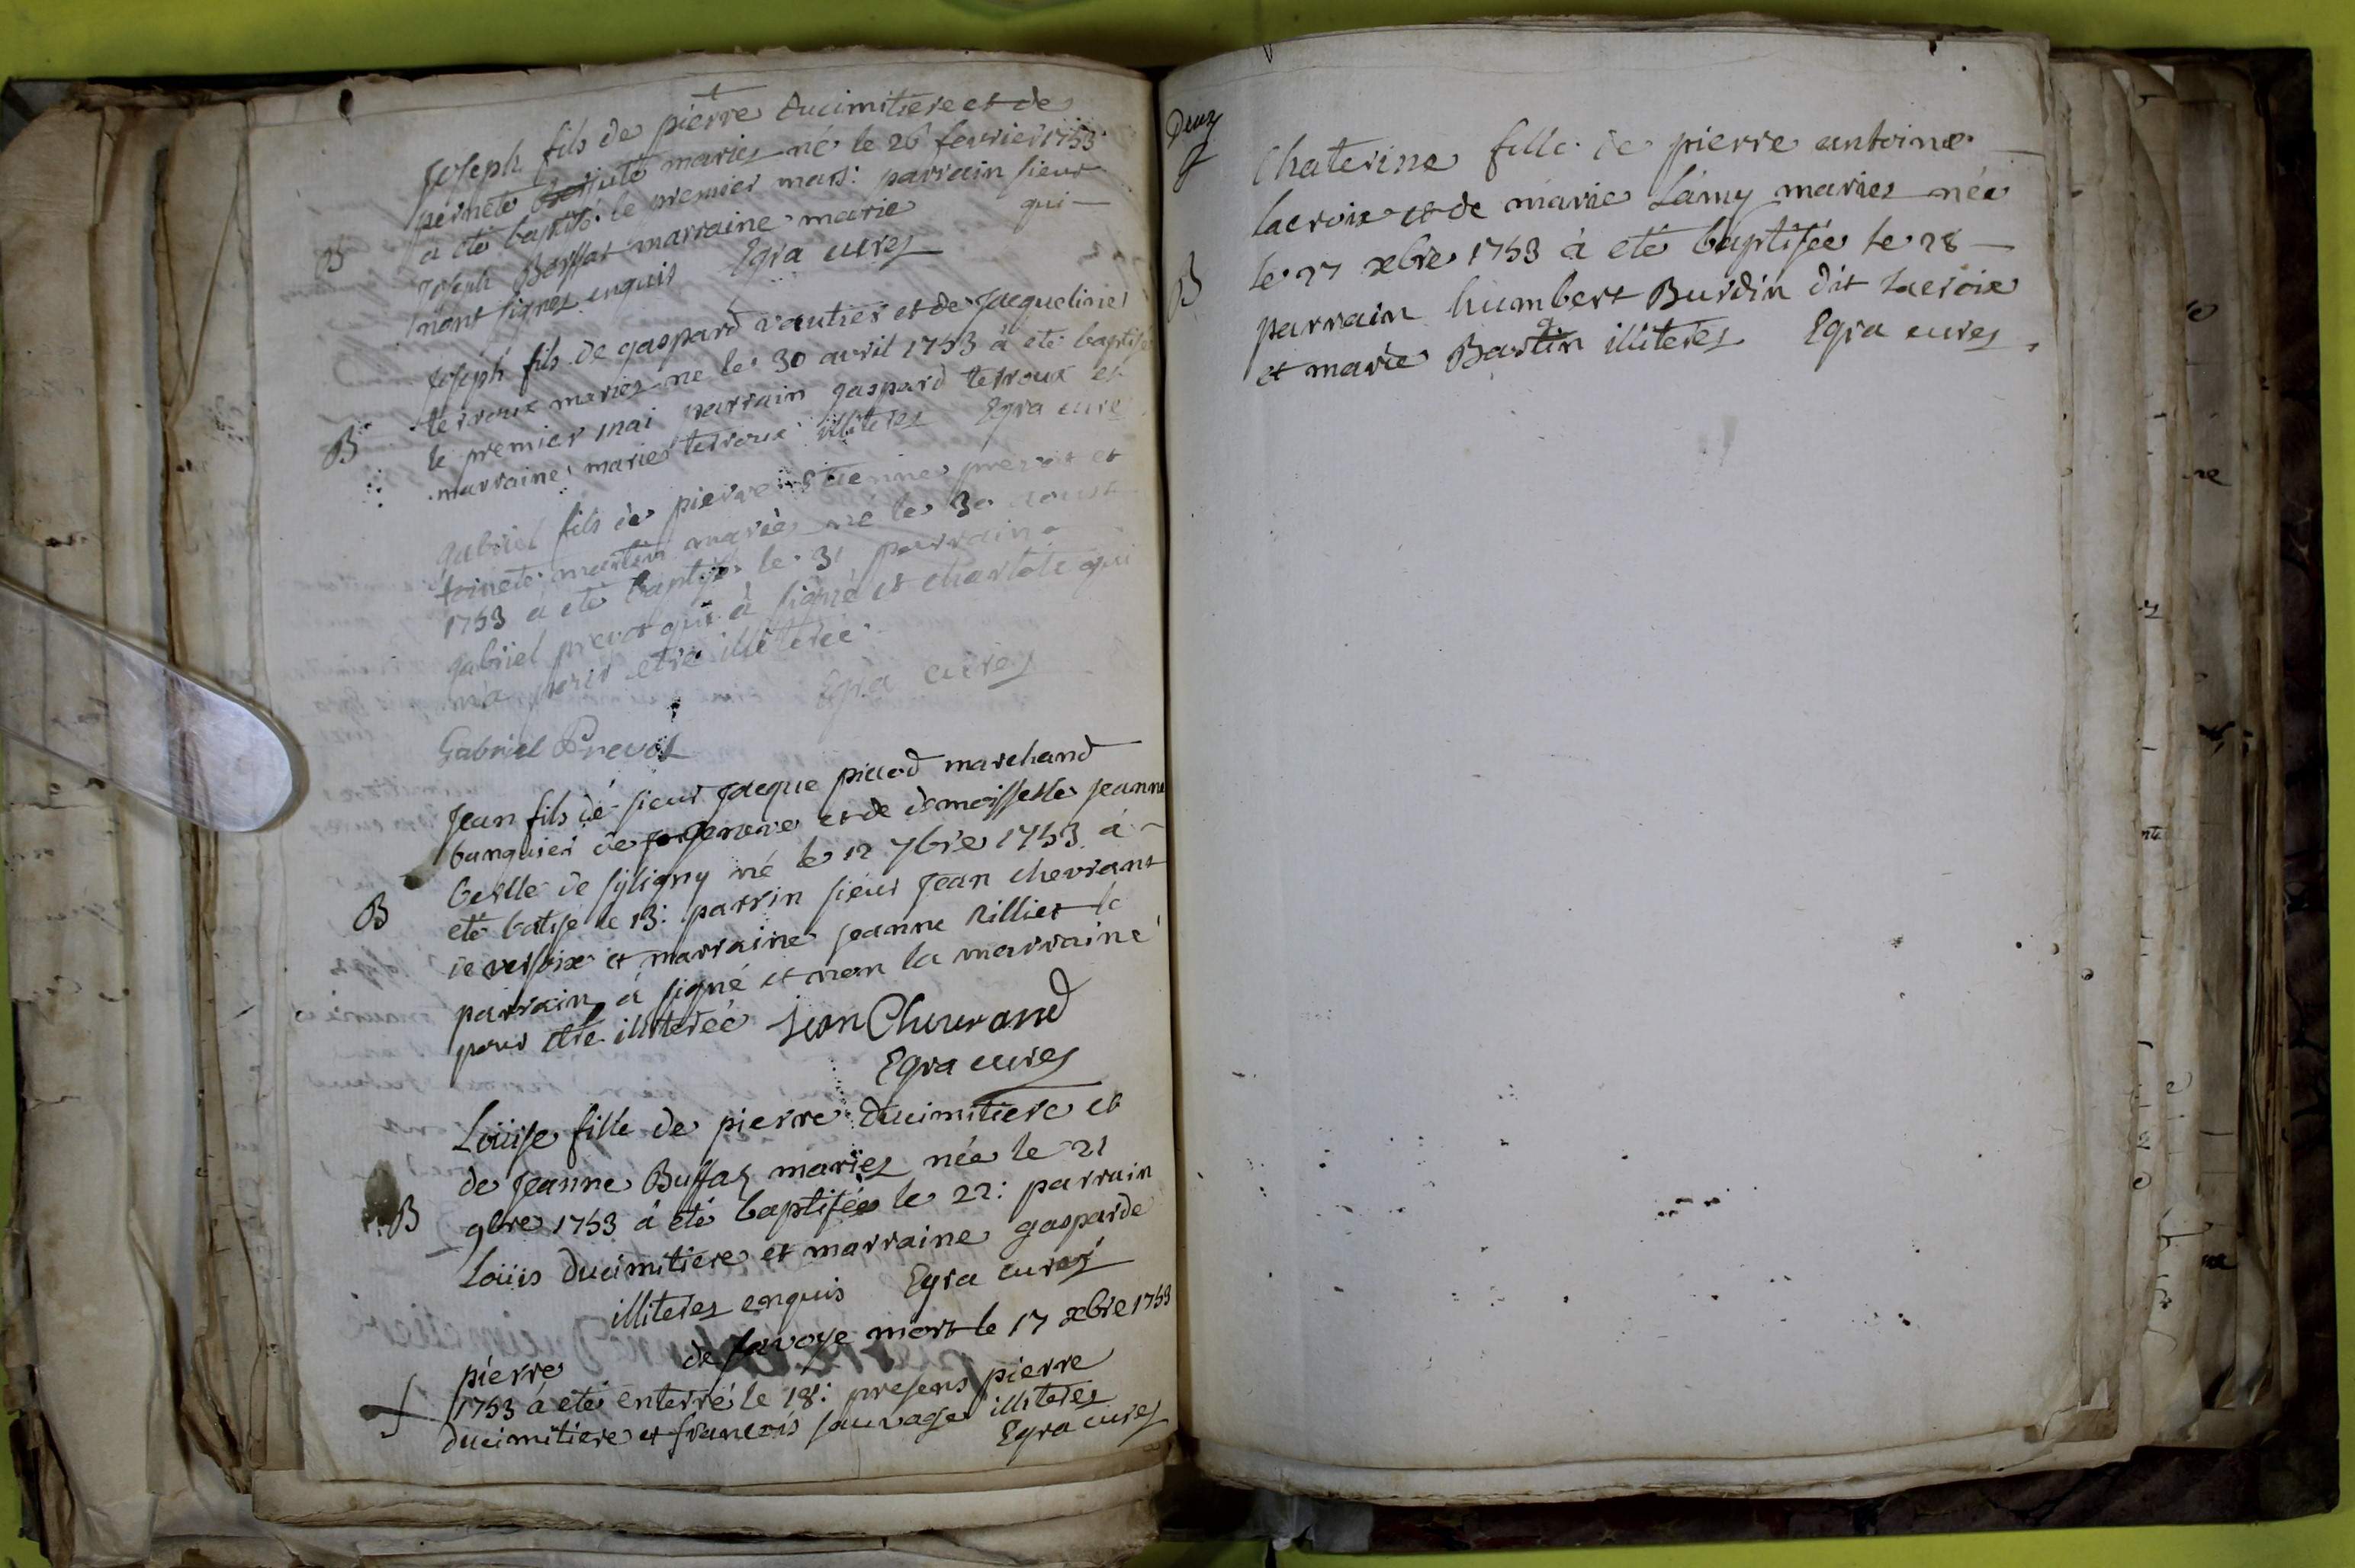 Joseph fils de pierre ducimitiere et de
pernete mariez né le 26 fevrier 1753
B
a eté baptisé le premier mars: parrain sieur
Joseph Boussat marraine marie qui
nont signez enquis Egra curez
Joseph fils de gaspard vautier et de Jacqueline
terroux mariez né le 30 avril 1753 à eté baptisé
B
le premier mai parrain gaspard terroux et
marraine marie terroux illiterez Egra curé
gabriel fils de pierre etienne prevot et
toinete martin mariés né le 30 aoust
1753 a eté baptisé le 31 parrain
gabriel prevot qui à signé et charlote qui
n'a pour etre illiterée
Egra curez
Gabriel Prevot
Jean fils de sieur Jacque picod marchand
banquier de geneve et de demoisselle Jeanne
B
de syligny né le 12 7bre 1753 à
eté batisé le 13: parrin sieur Jean chevrant
de versoix et marraine jeanne Rilliet le
parrain à signé et non la marraine
pour etre illiterée Jean Cheurand
Egra curez
Loüise fille de pierre ducimitiere et
de Jeanne Buffaz mariez née le 21
B
9bre 1753 à eté baptisée le 22: parrain
Loüis ducimitiere et marraine gasparde
illiterez enquis Egra curez
pierre de savoye mort le 17 xbre 1753
1753 à eté enterré le 18: presens pierre
ducimitiere et francois sauvage illiterez
Egra curez
Deuz
Chaterine fille de pierre antoine
lacroix et de marie Lamy mariez née
B
le 27 xbre 1753 à eté baptisée le 28
parrain humbert Burdin dit Lacroix
et marie Bastin illiterez Egra curez